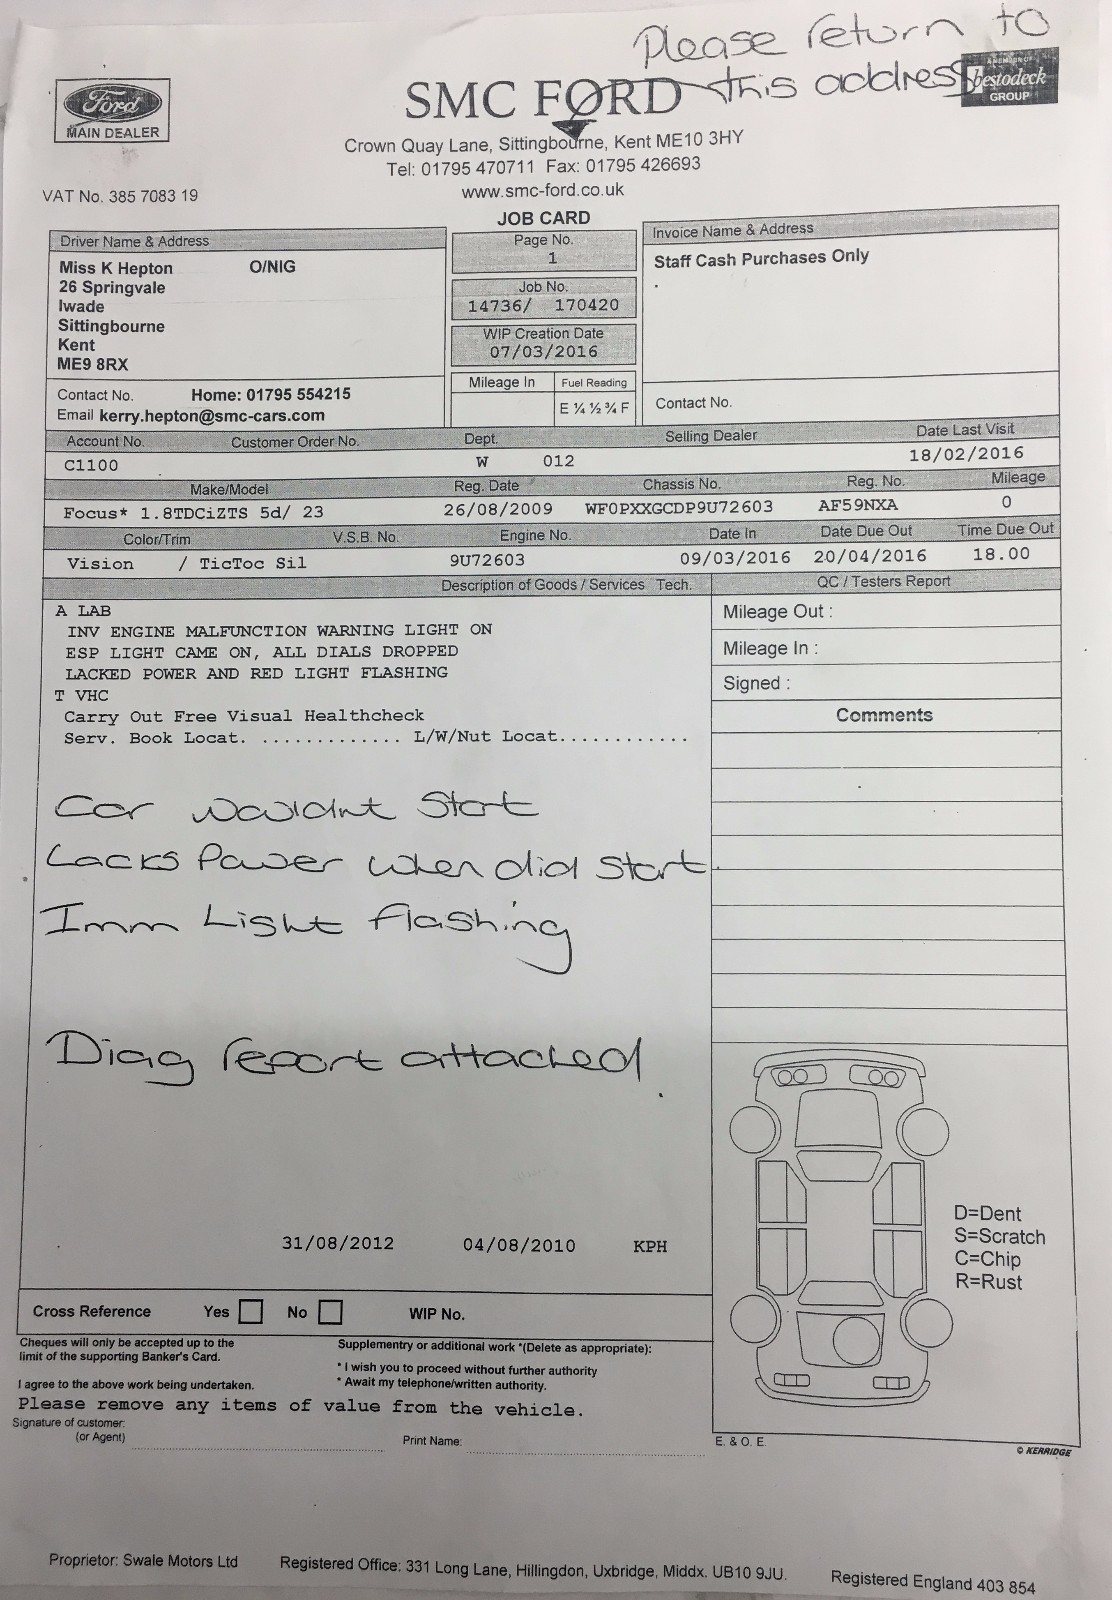 Please return to
this address
Ford
MAIN DEALER
SMC FORD
A MEMBER OF
bestodeck
GROUP
Crown Quay Lane, Sittingbourne, Kent ME10 3HY
Tel: 01795 470711 Fax: 01795 426693
www.smc-ford.co.uk
VAT No. 385 7083 19
JOB CARD
Driver Name & Address
Miss K Hepton O/NIG
26 Springvale
Iwade
Sittingbourne
Kent
ME9 8RX
Contact No. Home: 01795 554215
Email kerry.hepton@smc-cars.com
Page No.
1
Job No.
14736/ 170420
WIP Creation Date
07/03/2016
Mileage In Fuel Reading
E ¼ ½ ¾ F
Invoice Name & Address
Staff Cash Purchases Only
Contact No.
Account No. Customer Order No. Dept. Selling Dealer Date Last Visit
C1100 W 012 18/02/2016
Make/Model Reg. Date Chassis No. Reg. No. Mileage
Focus* 1.8TDCiZTS 5d/ 23 26/08/2009 WF0PXXGCDP9U72603 AF59NXA 0
Color/Trim V.S.B. No. Engine No. Date In Date Due Out Time Due Out
Vision / TicToc Sil 9U72603 09/03/2016 20/04/2016 18.00
Description of Goods / Services Tech. QC / Testers Report
A LAB
INV ENGINE MALFUNCTION WARNING LIGHT ON
ESP LIGHT CAME ON, ALL DIALS DROPPED
LACKED POWER AND RED LIGHT FLASHING
T VHC
Carry Out Free Visual Healthcheck
Serv. Book Locat. ............. L/W/Nut Locat............
Car wouldnt Start
Lacks Power when did start
Imm Light flashing
Diag report attached.
31/08/2012 04/08/2010 KPH
Mileage Out :
Mileage In :
Signed :
Comments
D=Dent
S=Scratch
C=Chip
R=Rust
Cross Reference Yes No WIP No.
Cheques will only be accepted up to the
limit of the supporting Banker's Card.
I agree to the above work being undertaken.
Supplementry or additional work *(Delete as appropriate):
* I wish you to proceed without further authority
* Await my telephone/written authority.
Please remove any items of value from the vehicle.
Signature of customer:
(or Agent)
Print Name:
E. & O. E.
© KERRIDGE
Proprietor: Swale Motors Ltd Registered Office: 331 Long Lane, Hillingdon, Uxbridge, Middx. UB10 9JU. Registered England 403 854